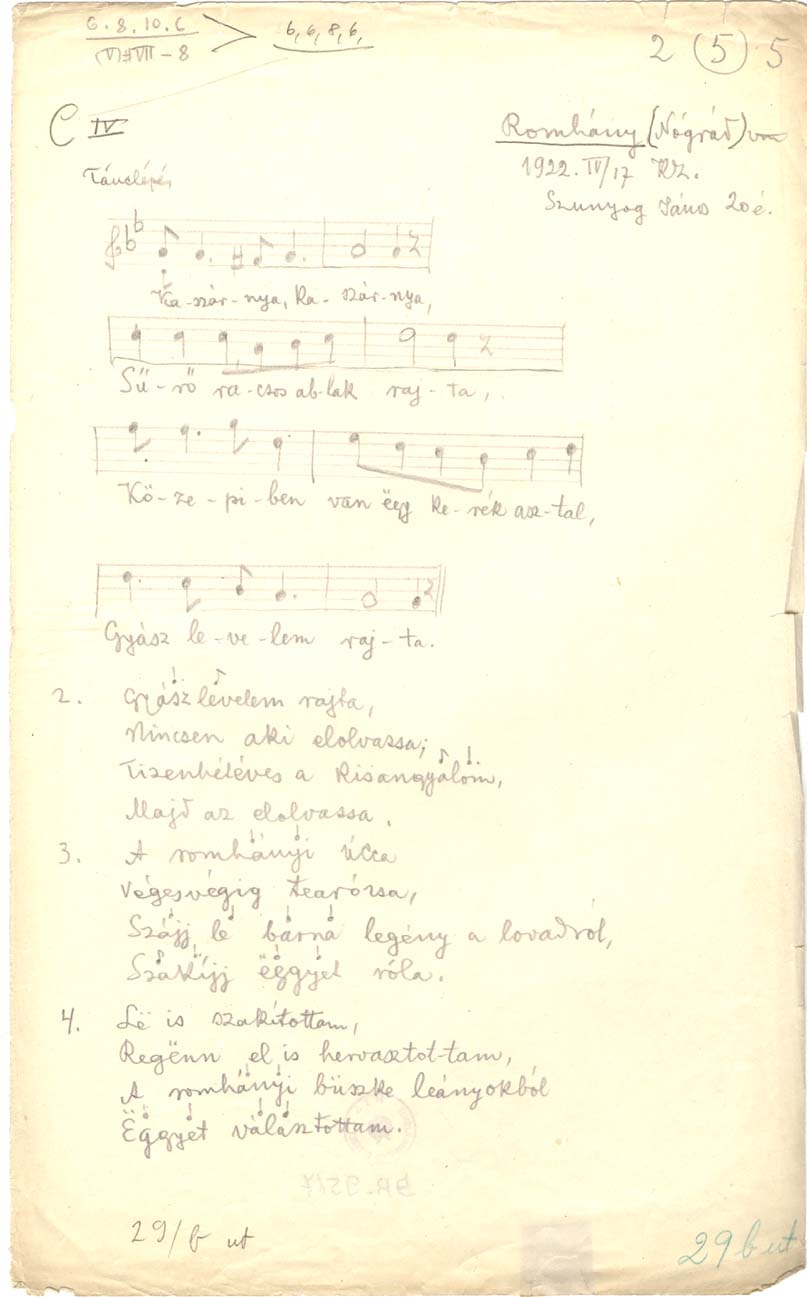 6. 8. 10. 6
(V) VII – 8
6, 6, 8, 6,
2 (5) 5
C IV
Romhány (Nógrád) vm
1922. IV/17 KZ.
Tánclépés
Szunyog János 20 é.
Ka-szár-nya, ka-szár-nya,
Sű-rö ra-csos ab-lak raj-ta,
Kö-ze-pi-ben van ëgy ke-rék asz-tal,
Gyász le-ve-lem raj-ta.
2. Gyászlevelem rajta,
Nincsen aki elolvassa;
Tizenhétéves a kisangyalom,
Majd az elolvassa.
3. A romhányi ucca
Végesvégig tearózsa,
Szájj le barna legény a lovadról,
Szakíjj ëggyet róla.
4. Lë is szakítottam,
Regënn el is hervasztot-tam,
A romhányi büszke leányokból
Ëggyet választottam.
29/b ut
29 b ut